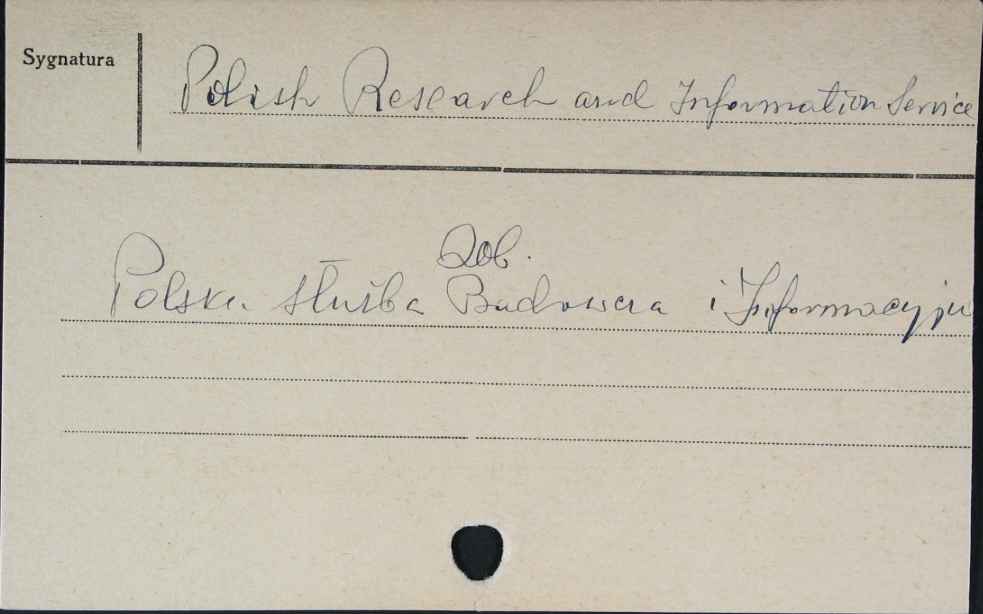 Sygnatura
Polish Research and Information Service
Zob.
Polska służba Badawcza i Informacyjn